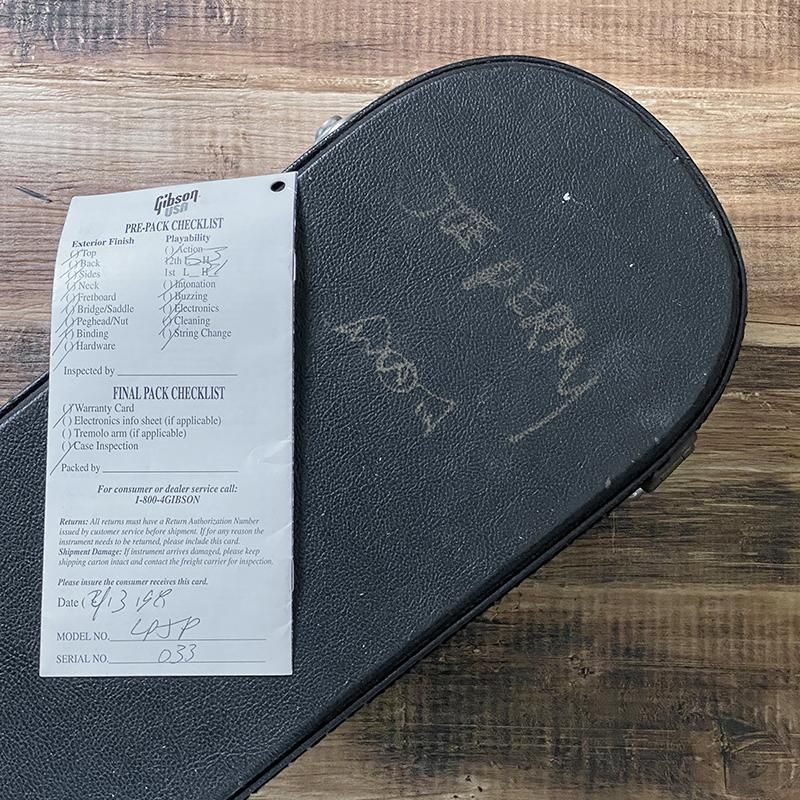 Gibson
USA
PRE-PACK CHECKLIST
Exterior Finish
( ) Top
( ) Back
( ) Sides
( ) Neck
( ) Fretboard
( ) Bridge/Saddle
( ) Peghead/Nut
( ) Binding
( ) Hardware
Playability
( ) Action
12th L H
1st L H
( ) Intonation
( ) Buzzing
( ) Electronics
( ) Cleaning
( ) String Change
Inspected by
FINAL PACK CHECKLIST
( ) Warranty Card
( ) Electronics info sheet (if applicable)
( ) Tremolo arm (if applicable)
( ) Case Inspection
Packed by
For consumer or dealer service call:
1-800-4GIBSON
Returns: All returns must have a Return Authorization Number
issued by customer service before shipment. If for any reason the
instrument needs to be returned, please include this card.
Shipment Damage: If instrument arrives damaged, please keep
shipping carton intact and contact the freight carrier for inspection.
Please insure the consumer receives this card.
Date
MODEL NO. LPJP
SERIAL NO. 033
JOE PERRY